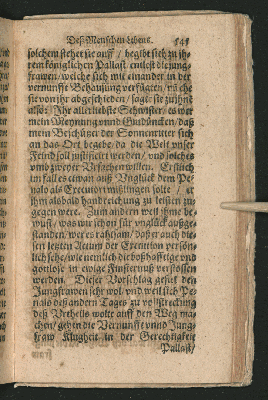 Deß Menschen Lebens. 545
solchem stehet sie auff / begibt sich zu ih-
rem königlichen Pallast, entlest die jung-
frawen / welche sich mit einander in der
vernunfft Behausung verfügten / nach
sie von ihr abgeschieden / sagte sie zu ihnē
also: Ihr allerliebste Schwester / es wer
mein Meynung vnnd Gutdüncken daß
mein Beschützer der Sonnenritter sich
an das Ort begebe / da die Welt vnser
Feind soll justificirt werden / vnd solches
vmb zweyer Vrsachen willen. Erstlich
im fall es etwan auß Vnglück dem Pe-
nalo als Executori mißlingen solte / er
ihm alsbald handreichung zu leisten zu-
gegen were. Zum andern weil ihme be-
wust / was wir schon für vnglück außge-
standen / wer es rahtsam / daß er auch die-
sen letzten Actum der Execution persön-
lich sehe / wie nemlich die boßhafftige vnd
gottlose in ewige Finsternuß verstossen
werden. Dieser Vorschlag gefiel den
Jungfrawen sehr wol / vnd weil sich Pe-
nalo deß andern Tages zu vollstreckung
deß Vrtheils wolte auff den Weg ma-
chen / gehen die Vernunfft vnnd Jung-
fraw Klugheit in der Gerechtigkeit
Pallast /